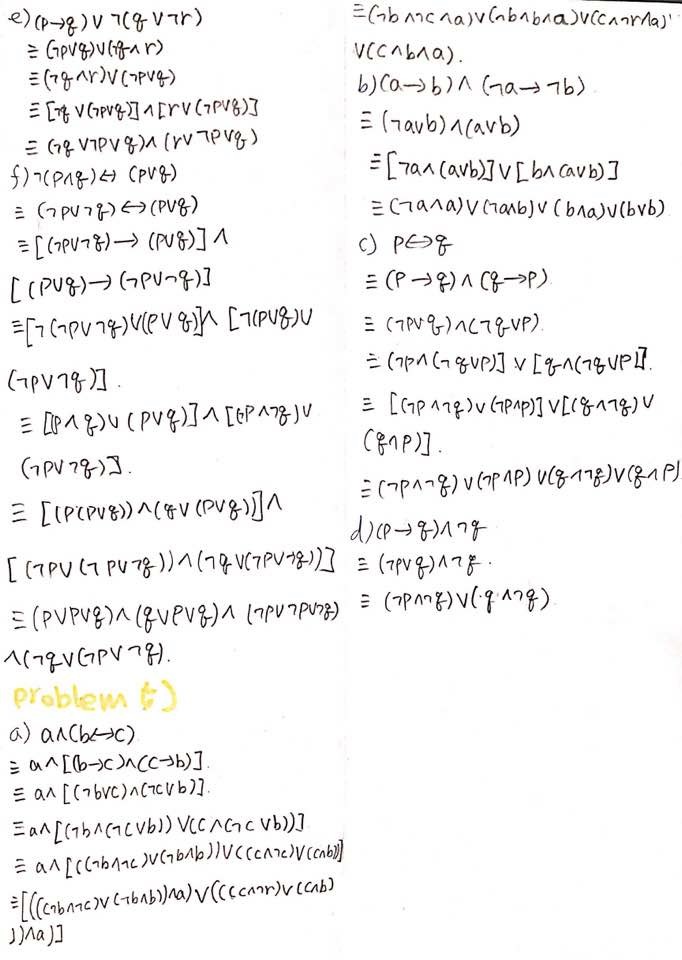 e) (p→q) ∨ ¬(q ∨ ¬r)
≡ (¬p∨q)∨(¬q∧r)
≡ (¬q∧r)∨(¬p∨q)
≡ [¬q ∨ (¬p∨q)] ∧ [r∨(¬p∨q)]
≡ (¬q ∨¬p∨q)∧ (r∨¬p∨q)
f) ¬(p∧q) ↔ (p∨q)
≡ (¬p∨¬q) ↔(p∨q)
≡ [(¬p∨¬q) → (p∨q)] ∧
[ (p∨q)→(¬p∨¬q)]
≡[¬(¬p∨¬q)∨(p∨q)]∧ [¬(p∨q)∨
(¬p∨¬q)].
≡ [(p∧q)∨(p∨q)]∧[(¬p∧¬q)∨
(¬p∨¬q)].
≡ [(p(p∨q))∧(q∨(p∨q))]∧
[(¬p∨(¬p∨¬q))∧(¬q∨(¬p∨¬q))]
≡(p∨p∨q)∧(q∨p∨q)∧ (¬p∨¬p∨¬q)
∧(¬q∨(¬p∨¬q).
problem 5)
a) a∧(b↔c)
≡ a∧[(b→c)∧(c→b)].
≡ a∧[(¬b∨c)∧(¬c∨b)].
≡a∧[(¬b∧(¬c∨b))∨(c∧(¬c∨b))]
≡ a∧[((¬b∧¬c)∨(¬b∧b))∨((c∧¬c)∨(c∧b))]
≡[(((¬b∧¬c)∨(¬b∧b))∧a)∨(((c∧¬r)∨(c∧b)
))∧a)]
≡(¬b∧¬c∧a)∨(¬b∧b∧a)∨(c∧¬r∧a)
∨(c∧b∧a).
b)(a→b)∧(¬a→¬b)
≡ (¬a∨b)∧(a∨b)
≡[¬a∧(a∨b)]∨[b∧(a∨b)]
≡(¬a∧a)∨(¬a∧b)∨(b∧a)∨(b∨b)
c) p↔q
≡ (p→q)∧(q→p)
≡ (¬p∨q)∧(¬q∨p).
≡(¬p∧(¬q∨p)] ∨[q∧(¬q∨p)].
≡ [(¬p∧¬q)∨(¬p∧p)]∨[(q∧¬q)∨
(q∧p)].
≡(¬p∧¬q)∨(¬p∧p)∨(q∧¬q)∨(q∧p)
d)(p→q)∧¬q
≡ (¬p∨q)∧¬q.
≡ (¬p∧¬q)∨(q∧¬q).